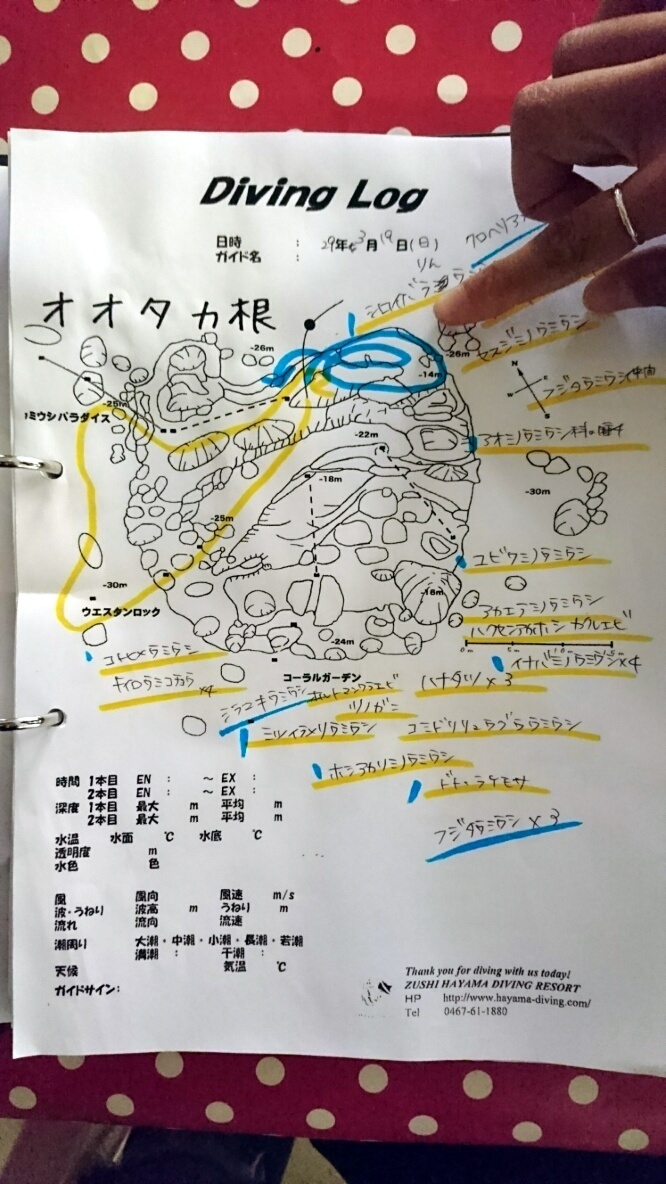 Diving Log
日時 : 29年 3月 19日(日)
ガイド名 : りん
クロヘリア
シロイバラ
オオタカ根
-26m
-26m
-14m
セスジミノウミウシ
フジタウミウシ
-25m
ミウシパラダイス
アオミノウミウシ科の
-22m
-18m
-30m
-25m
ユビワミノウミウシ
-30m
-16m
ウエスタンロック
アカエラミノウミウシ
ハクセンアカホシカクレエビ
-24m
0m 5m 10m
コトヒメウミウシ
イナバミノウミウシ×4
コーラルガーデン
キイロウミコチョウ ×4
ハナタツ×3
シラユキウミウシ
オルトマンワラエビ
ツノガニ
ミツイラメリウミウシ
コミドリリュウグウウミウシ
ホシアカリミノウミウシ
時間 1本目 EN : ~ EX :
2本目 EN : ~ EX :
深度 1本目 最大 m 平均 m
2本目 最大 m 平均 m
フジタウミウシ×3
水温 水面 ℃ 水底 ℃
透明度 m
水色 色
風 風向 風速 m/s
波・うねり 波高 m うねり m
流れ 流向 流速
潮周り 大潮・中潮・小潮・長潮・若潮
満潮 : 干潮 :
天候 気温 ℃
ガイドサイン:
Thank you for diving with us today!
ZUSHI HAYAMA DIVING RESORT
HP http://www.hayama-diving.com/
Tel 0467-61-1880